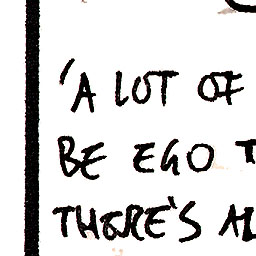 'A LOT OF
BE EGO T
THERE'S AL